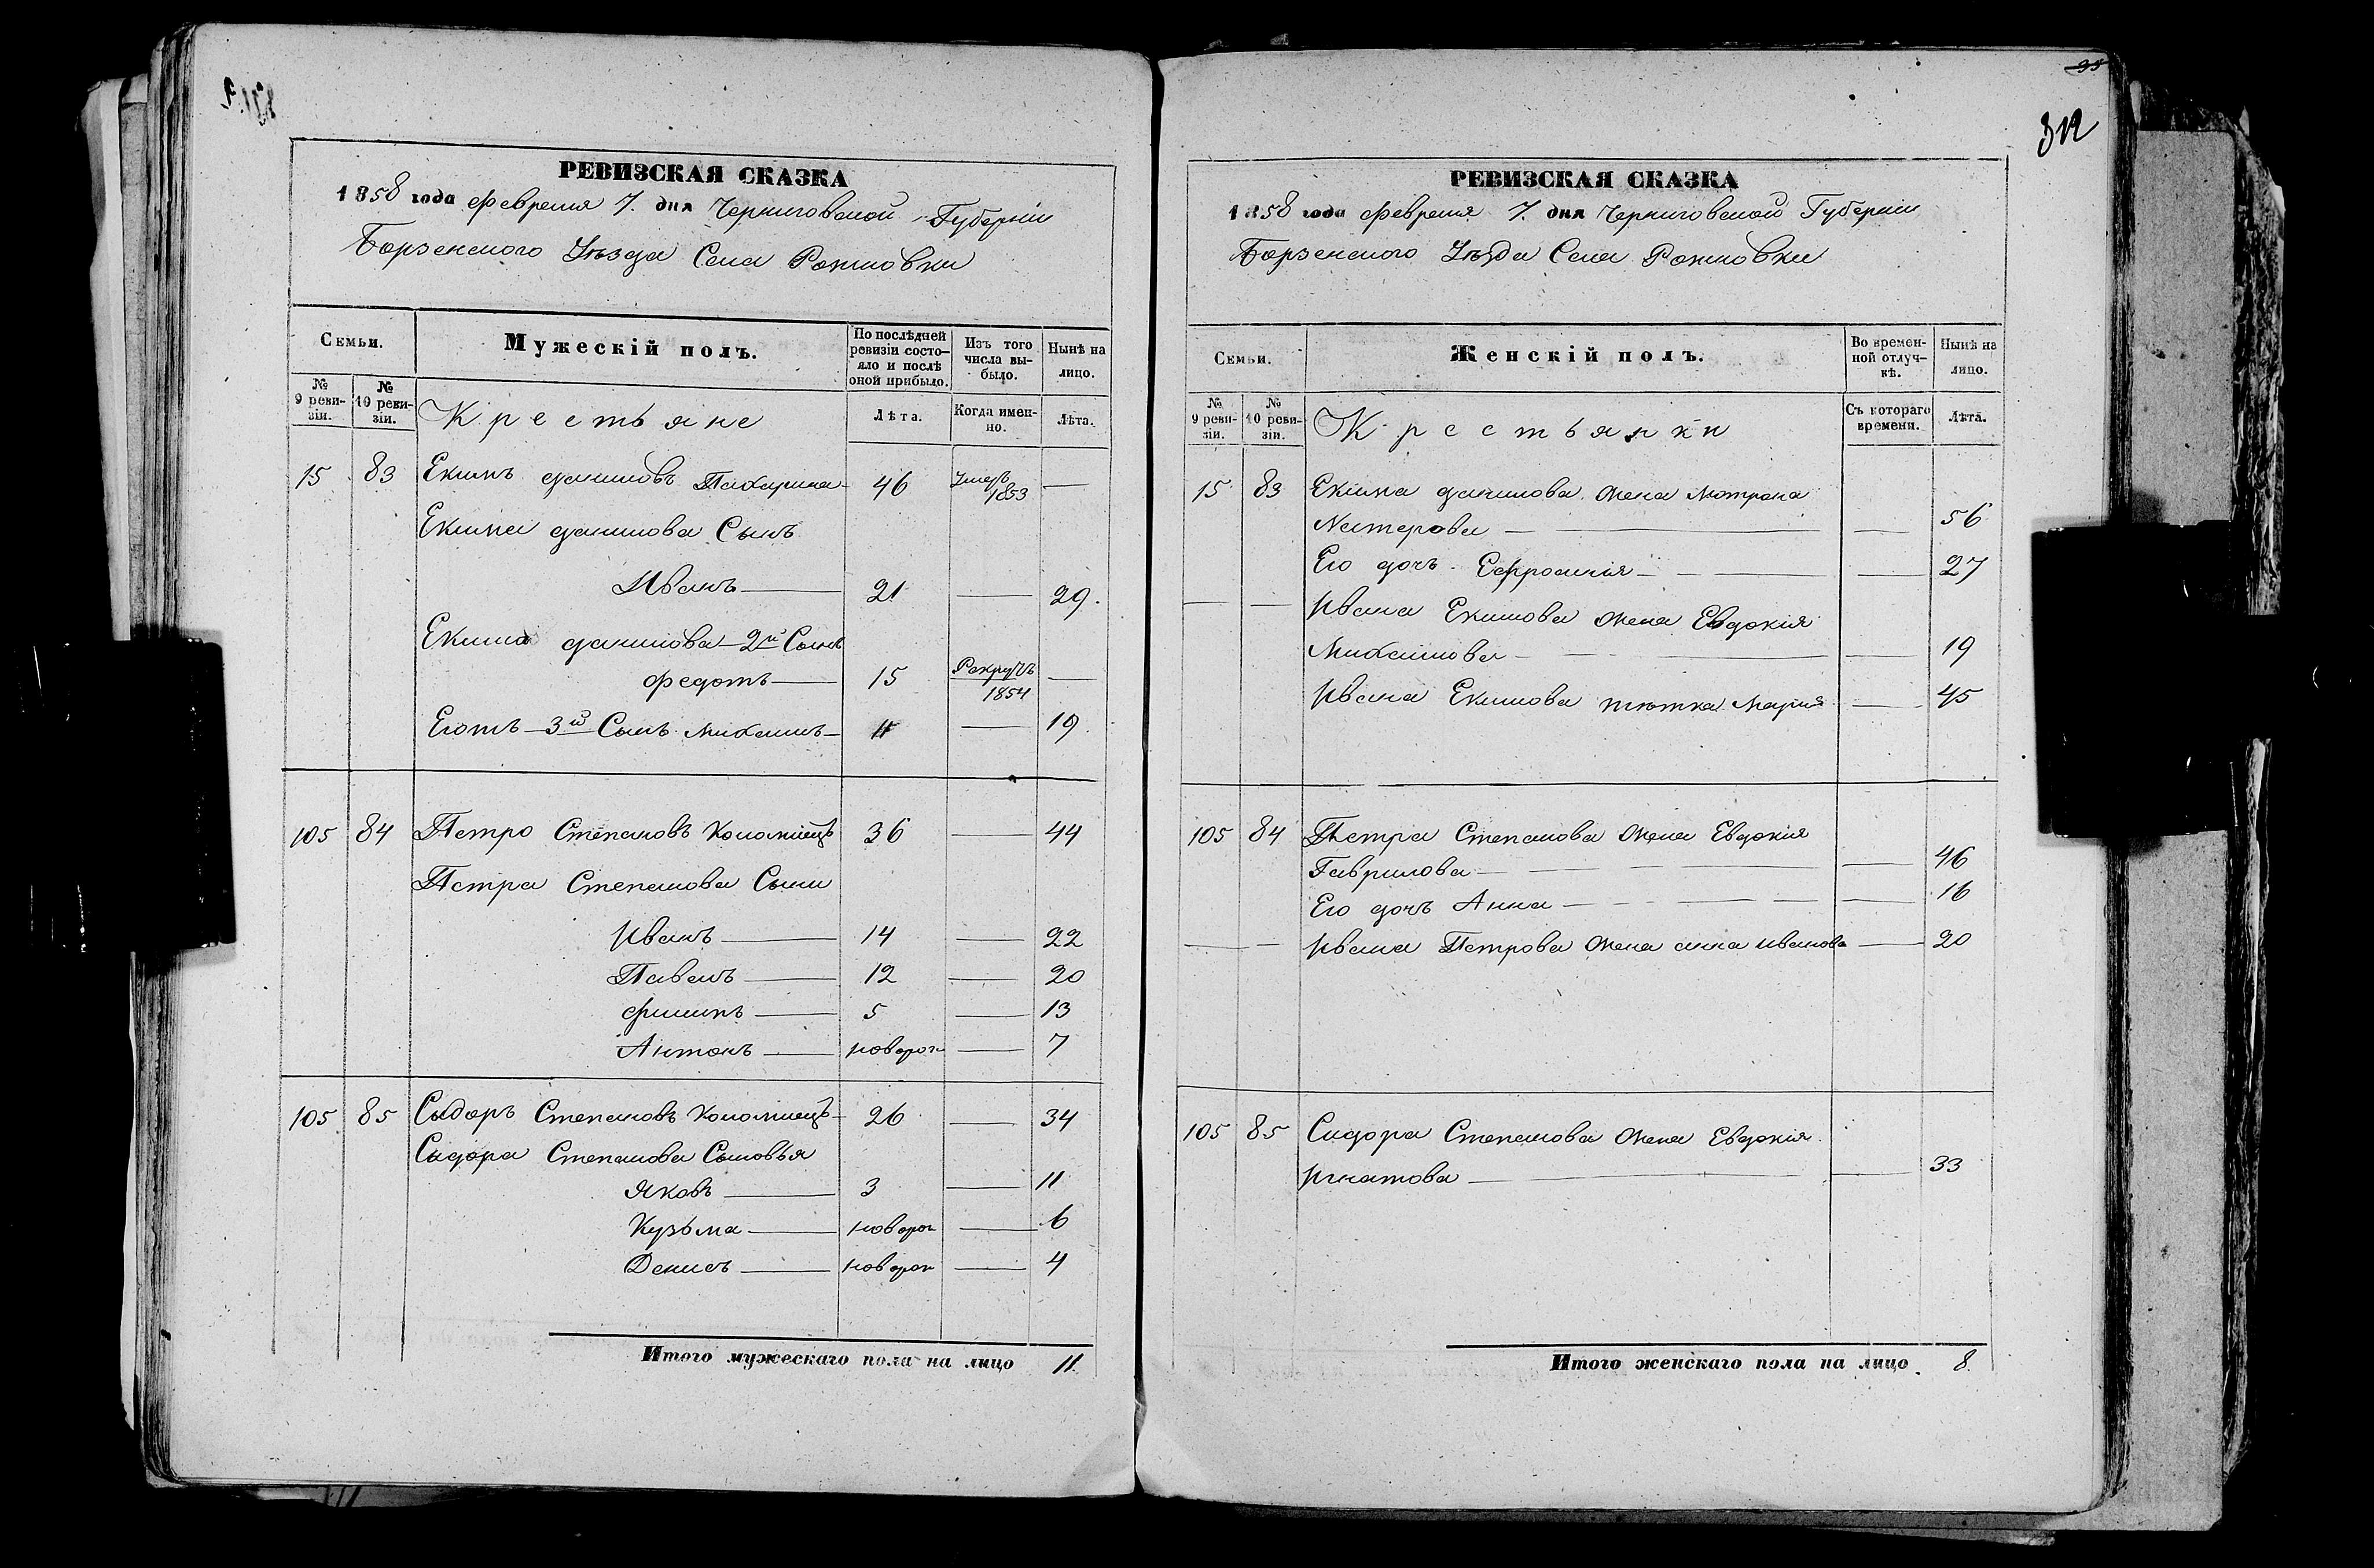 РЕВИЗСКАЯ СКАЗКА
1858 года февраля 7. дня Черниговской Губернии
Борзенского Уѣзда Села Рожновки
Семьи.
Мужескій полъ.
По послѣдней ревизіи состо-
яло и послѣ
оной прибыло.
Изъ того
числа вы-
было.
Нынѣ на
лицо.
№
9 реви-
зіи.
№
10 реви-
зіи.
Крестьяне
Лѣта.
Когда имен-
но.
Лѣта.
15 83 Екимъ даниловъ 46 Умеръ 1853 —
Екима данилова Сынъ
Иванъ — 21 — 29.
Екима данилова 2й Сынъ
федотъ — 15 Рекрутъ 1854 —
Егожъ 3й Сынъ Михаилъ — 11 — 19
105 84 Петро Степановъ Коломіецъ 36 — 44
Петра Степанова Сыни
Иванъ — 14 — 22
Павелъ — 12 — 20
филипъ — 5 — 13
Антонъ — новорож — 7
105 85 Сыдоръ Степановъ Коломіецъ 26 — 34
Сыдора Степанова Сыновья
Яковъ — 3 — 11
Кузьма — новорож — 6
Денисъ — новорож — 4
Итого мужескаго пола на лицо 11.
95
312
РЕВИЗСКАЯ СКАЗКА
1858 года февраля 7. дня Черниговской Губерніи
Борзенского Уѣзда Села Рожновки
Семьи.
Женскій полъ.
Во времен-
ной отлуч-
кѣ.
Нынѣ на
лицо.
№
9 реви-
зіи.
№
10 реви-
зіи.
Крестьянки
Съ котораго
времени.
Лѣта.
15 83 Екима данилова жена Мотрона
Нестерова — — 56
Его дочь Ефросинія — — 27
— — Ивана Екимова жена Евдокія
Михайлова — — 19
Ивана Екимова тютка Марія — 45
105 84 Петра Степанова жена Евдокія
Гаврилова — — 46
Его дочь Анна — — 16
— — Ивана Петрова жена анна иванова — 20
105 85 Сидора Степанова жена Евдокія
Игнатова — — 33
Итого женскаго пола на лицо. 8.